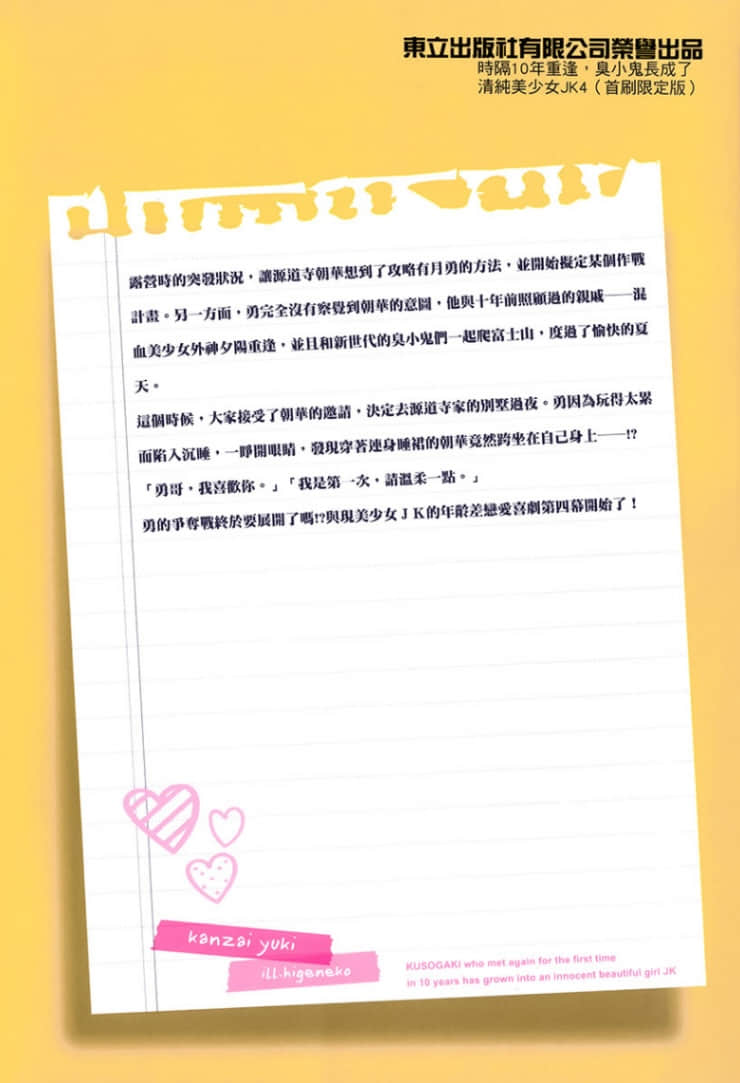 東立出版社有限公司榮譽出品
時隔10年重逢，臭小鬼長成了
清純美少女JK4（首刷限定版）
露營時的突發狀況，讓源道寺朝華想到了攻略有月勇的方法，並開始擬定某個作戰
計畫。另一方面，勇完全沒有察覺到朝華的意圖，他與十年前照顧過的親戚──混
血美少女外神夕陽重逢，並且和新世代的臭小鬼們一起爬富士山，度過了愉快的夏
天。
這個時候，大家接受了朝華的邀請，決定去源道寺家的別墅過夜。勇因為玩得太累
而陷入沉睡，一睜開眼睛，發現穿著連身睡裙的朝華竟然跨坐在自己身上──!?
「勇哥，我喜歡你。」「我是第一次，請溫柔一點。」
勇的爭奪戰終於要展開了嗎!?與現美少女ＪＫ的年齡差戀愛喜劇第四幕開始了！
kanzai yuki
ill.higeneko
KUSOGAKI who met again for the first time
in 10 years has grown into an innocent beautiful girl JK